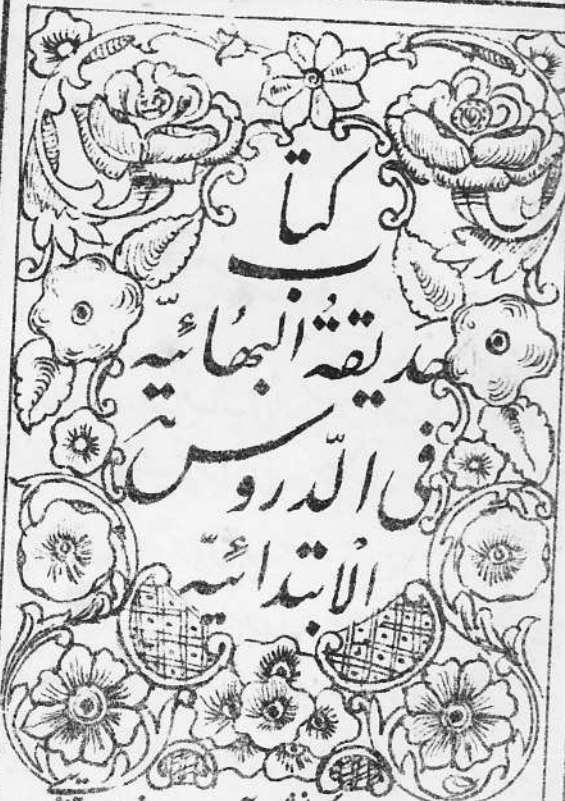 كتاب
حديقة البهائيّه
في الدّروس
الابتدائيّه